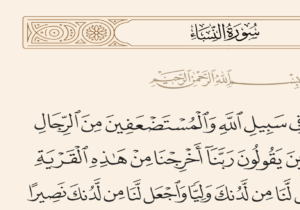 سُورَةُ النِّسَاءِ
بِسْمِ اللَّهِ الرَّحْمَٰنِ الرَّحِيمِ
فِي سَبِيلِ اللَّهِ وَالْمُسْتَضْعَفِينَ مِنَ الرِّجَالِ
ينَ يَقُولُونَ رَبَّنَا أَخْرِجْنَا مِنْ هَٰذِهِ الْقَرْيَةِ
لَّنَا مِن لَّدُنكَ وَلِيًّا وَاجْعَل لَّنَا مِن لَّدُنكَ نَصِيرًا